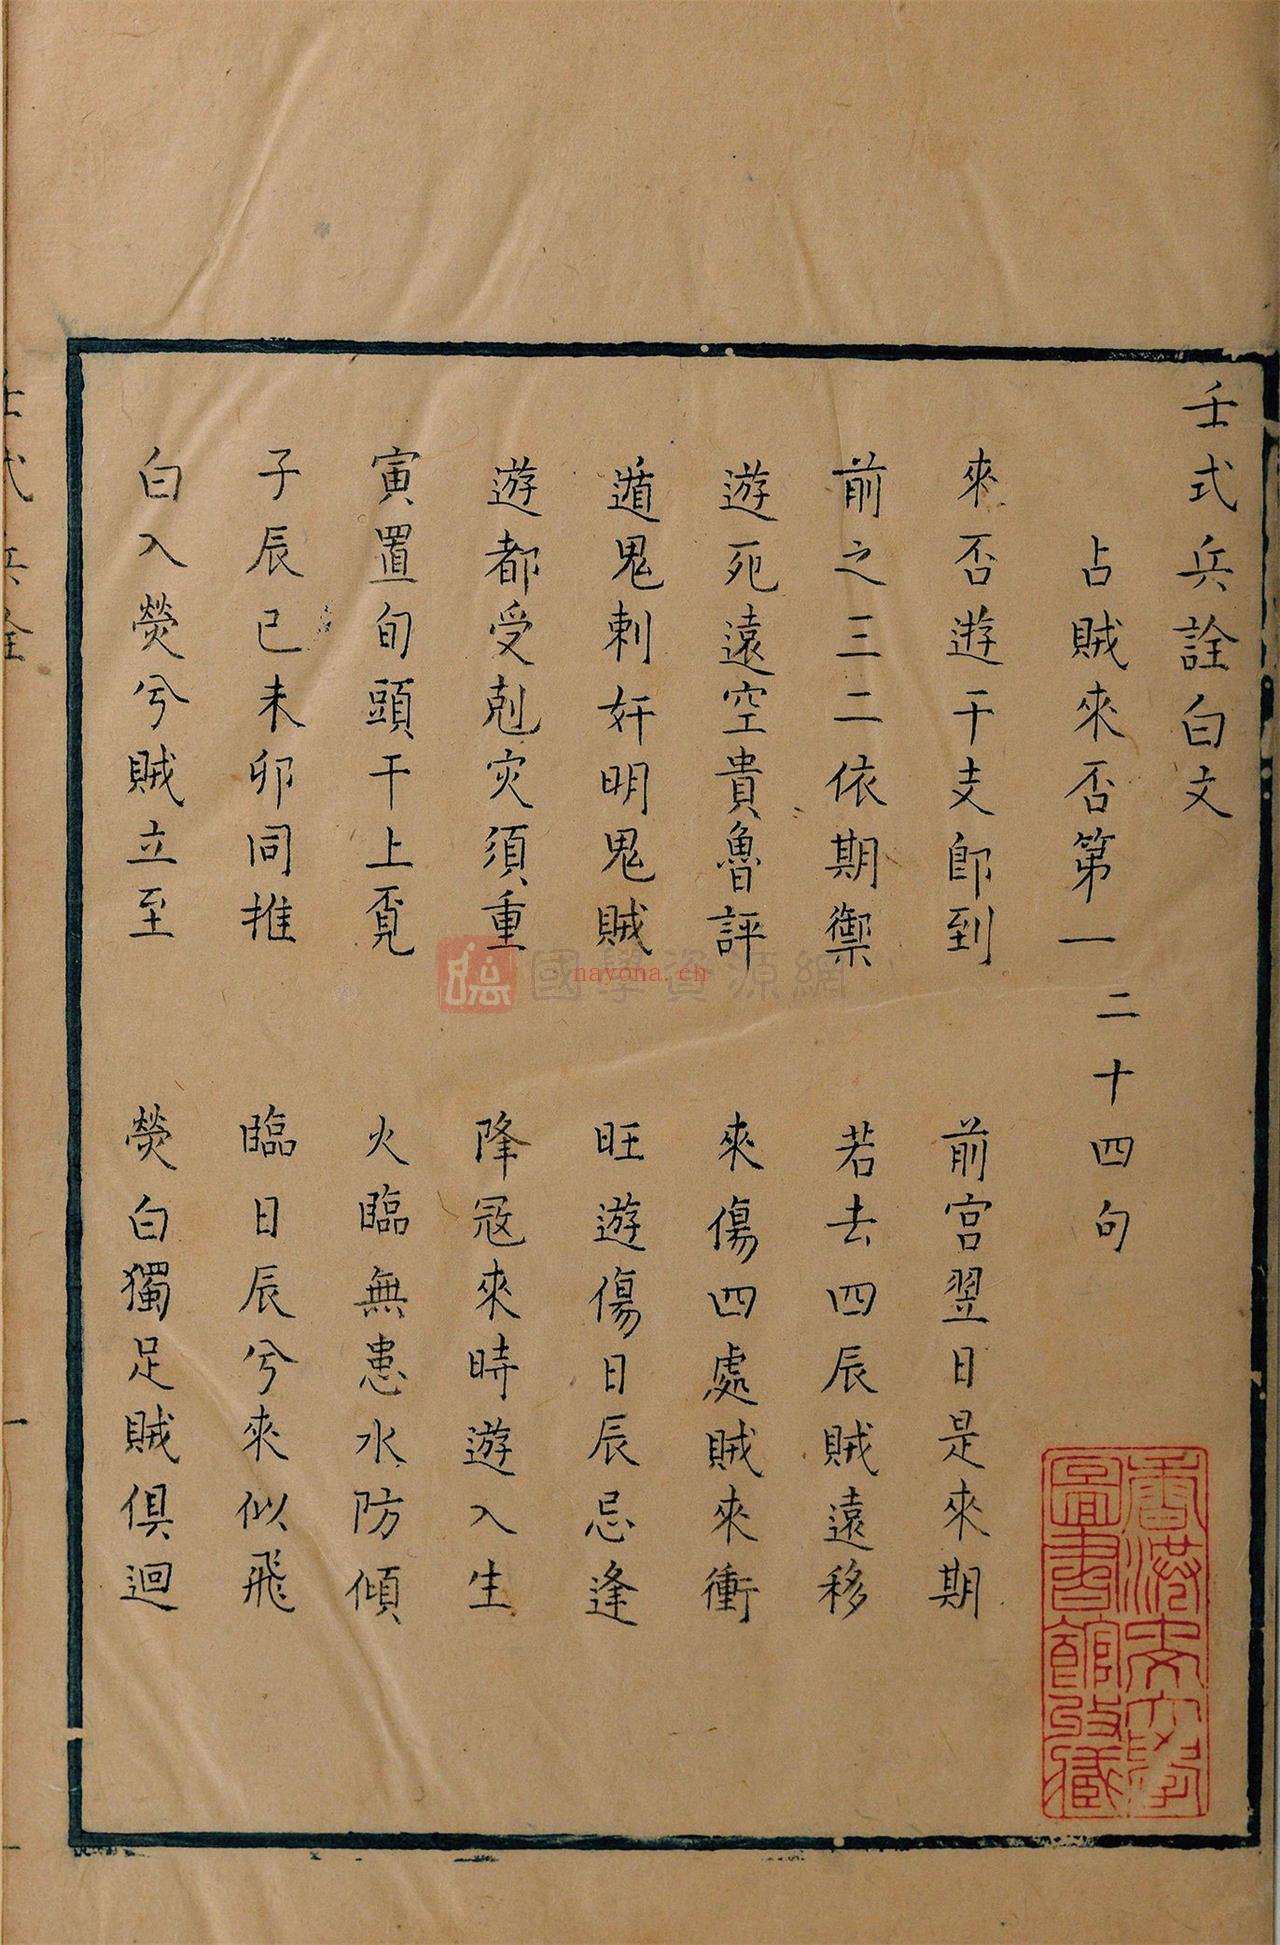 壬式兵詮白文
占賊來否第一 二十四句
來否遊干支即到 前宮翌日是來期
前之三二依期禦 若去四辰賊遠移
遊死遠空貴魯評 來傷四處賊來衝
遁鬼剌奸明鬼賊 旺遊傷日辰忌逢
遊都受剋灾須重 降冦來時遊入生
寅置旬頭干上覔 火臨無患水防傾
子辰已未卯同推 臨日辰兮來似飛
白入熒兮賊立至 熒白獨足賊俱迴
壬式兵詮 一
香港中文大學
圖書館所藏
國學資源網
nayona.cn